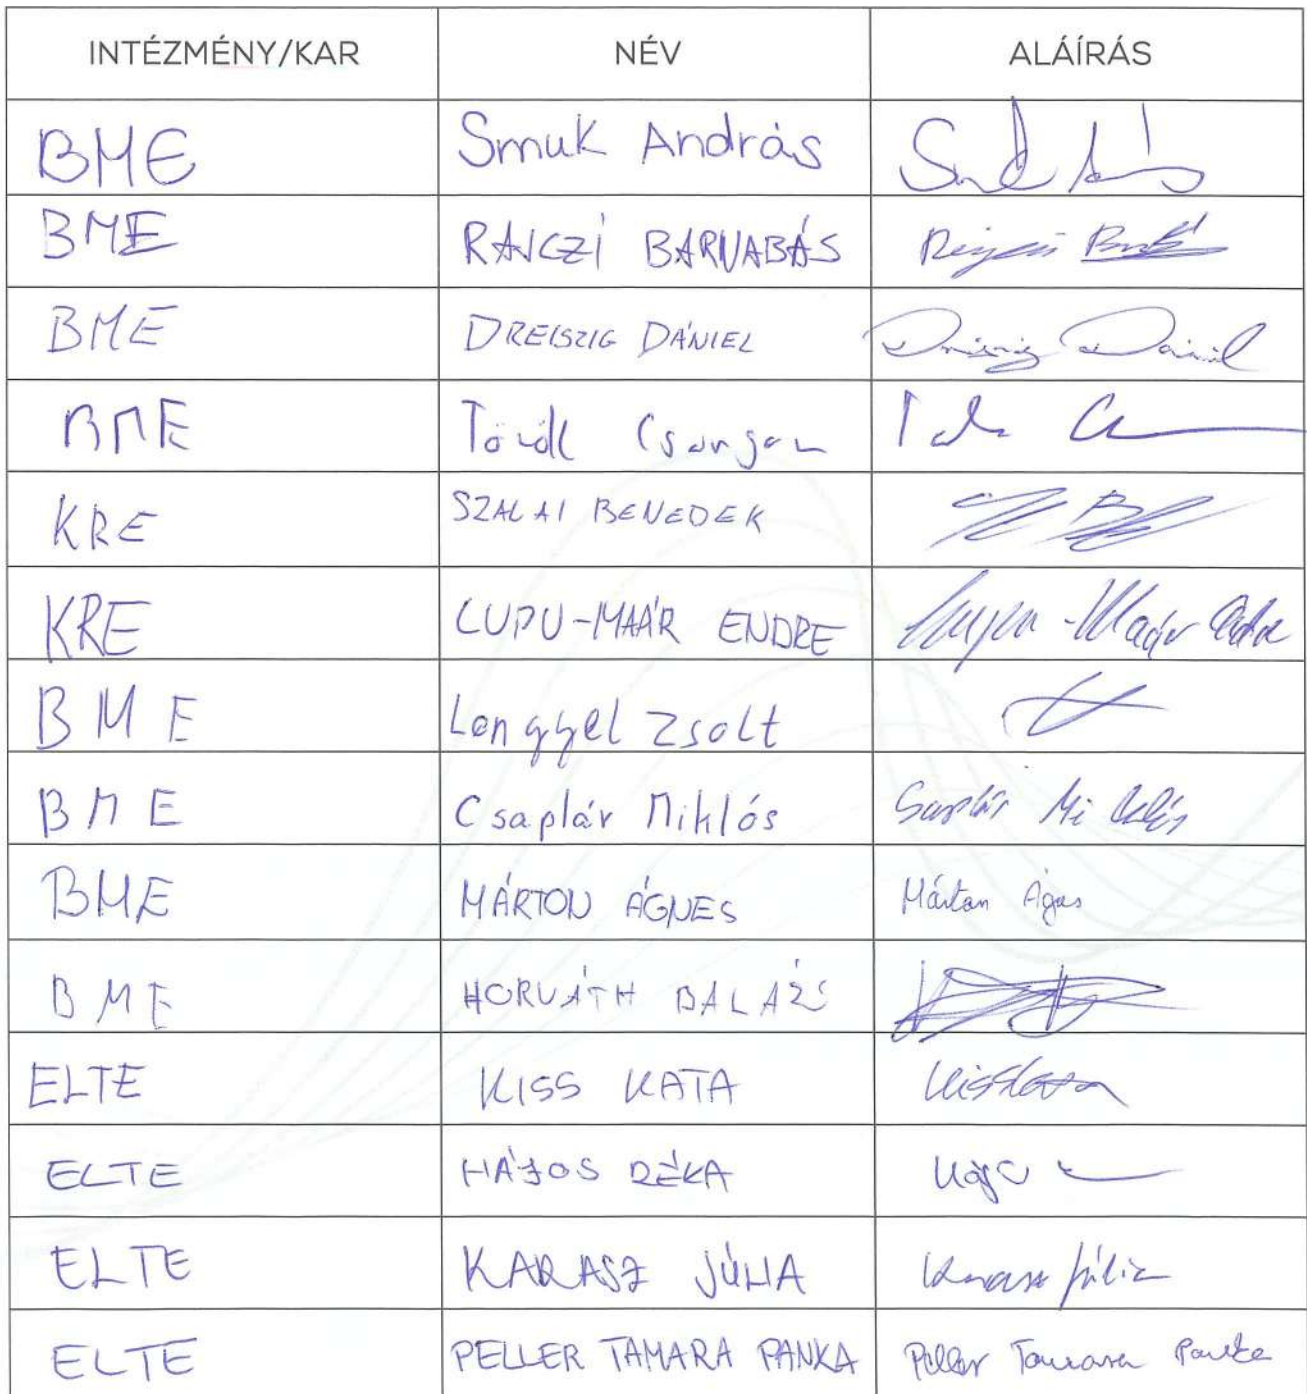 INTÉZMÉNY/KAR NÉV ALÁÍRÁS
BME Smuk András
BME RAJCZI BARNABÁS
BME DREISZIG DÁNIEL Dreiszig Dániel
BME Török Csongor
KRE SZALAI BENEDEK
KRE LUPU-MAÁR ENDRE Lupu-Maár Endre
BME Lengyel Zsolt
BME Csaplár Miklós Csaplár Miklós
BME MÁRTON ÁGNES Márton Ágnes
BME HORVÁTH BALÁZS
ELTE KISS KATA Kiss Kata
ELTE HAJÓS RÉKA
ELTE KARASZ JÚLIA Karasz Júlia
ELTE PELLER TAMARA PANKA Peller Tamara Panka